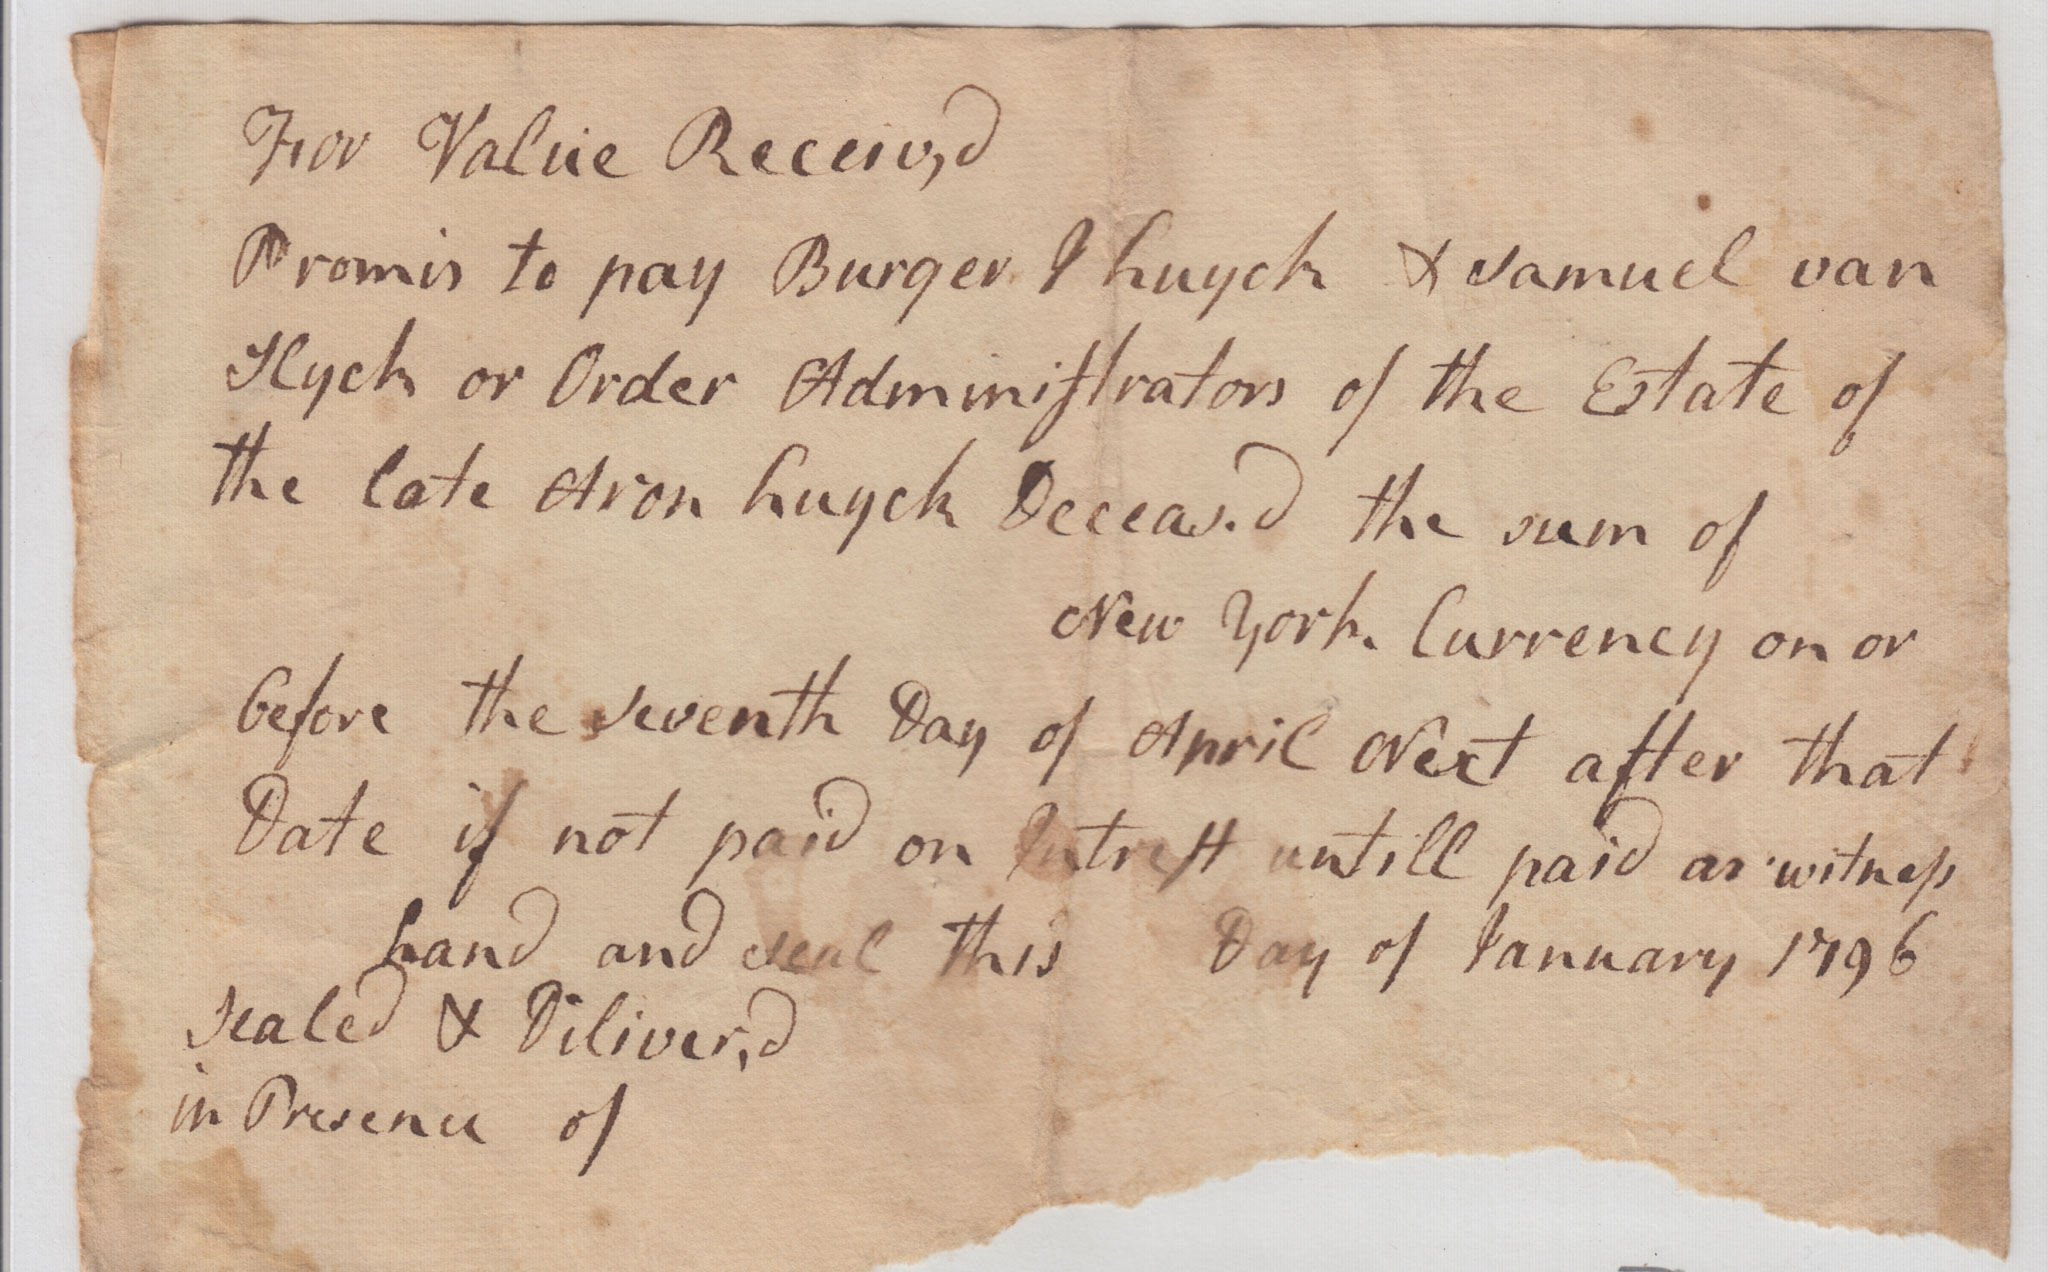 For Value Receiv,d
Promis to pay Burger I huyck & Samuel van
Slyck or Order Administrators of the Estate of
the late Aron huyck Deceas.d the sum of
New York Currency on or
before the seventh Day of April Next after that
Date if not paid on Intrest untill paid as witness
hand and seal this Day of January 1796
Sealed & Diliver,d
in Presence of